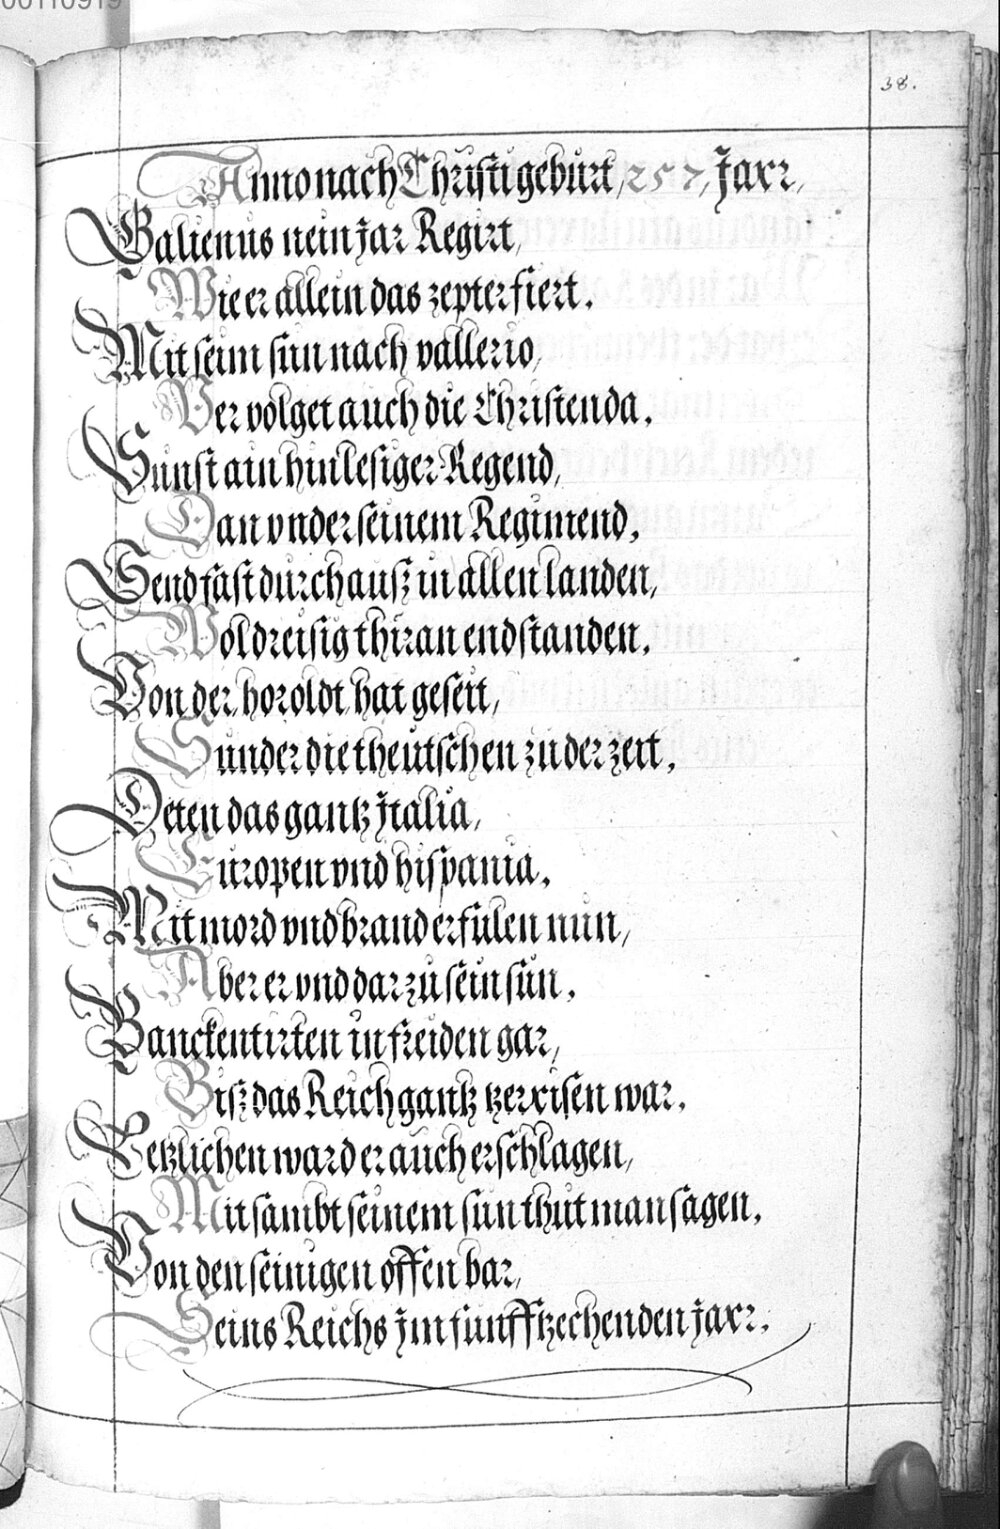 00110919
38.
Anno nach Christi gebürt, 257, Jaxr,
Galienus nein Jar Regirt,
Wie er allein das zepter fiert.
Mit seim sun nach vallerio,
Ver volget auch die Christenda,
Sunst ain hinlesiger Regend,
Dan vnder seinem Regimend,
Send fast durch auß in allen landen,
Wol dreisig thiran endstanden.
Von der, horoldt, hat geseit,
Sunder die theutschen zu der zeit,
Deten das gantz Jtalia,
Europen vnd hispania,
Mit mord vnd brand erfulen nun,
Aber er vnd dar zu sein sun,
Banckentirten in freiden gar,
Biß das Reich gantz tzerxisen war.
Letzlichen ward er auch erschlagen,
Mit sambt seinem sun thut man sagen.
Von den seinigen offen bar,
Seins Reichs Jm funff tzechenden jaxr.